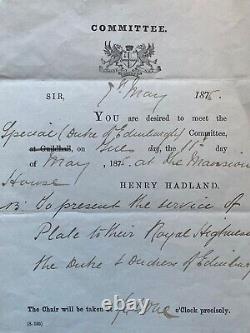 COMMITTEE.
SIR, 7th May 1875.
YOU are desired to meet the
Special (Duke of Edinburgh) Committee,
at Guildhall, on Tues day, the 11th day
of May, 1875, at the Mansion
House
HENRY HADLAND.
NB: To present the service of
Plate to their Royal Highnesses
the Duke & Duchess of Edinburgh
The Chair will be taken at o'Clock precisely.